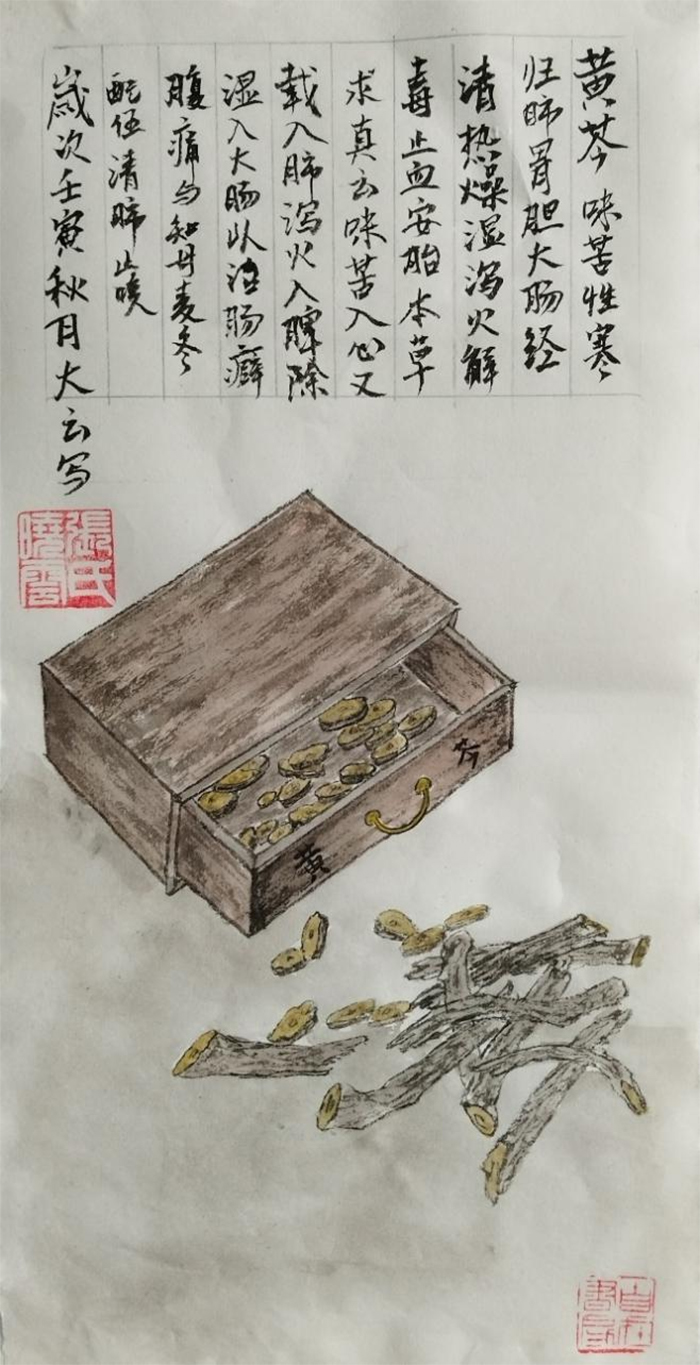 黄芩 味苦性寒
归肺胃胆大肠经
清热燥湿泻火解
毒止血安胎本草
求真云味苦入心又
载入肺泻火入脾除
湿入大肠以治肠癖
腹痛与知母麦冬
配伍清肺止咳
岁次壬寅秋月大云写
張氏
曉雲
黄芩